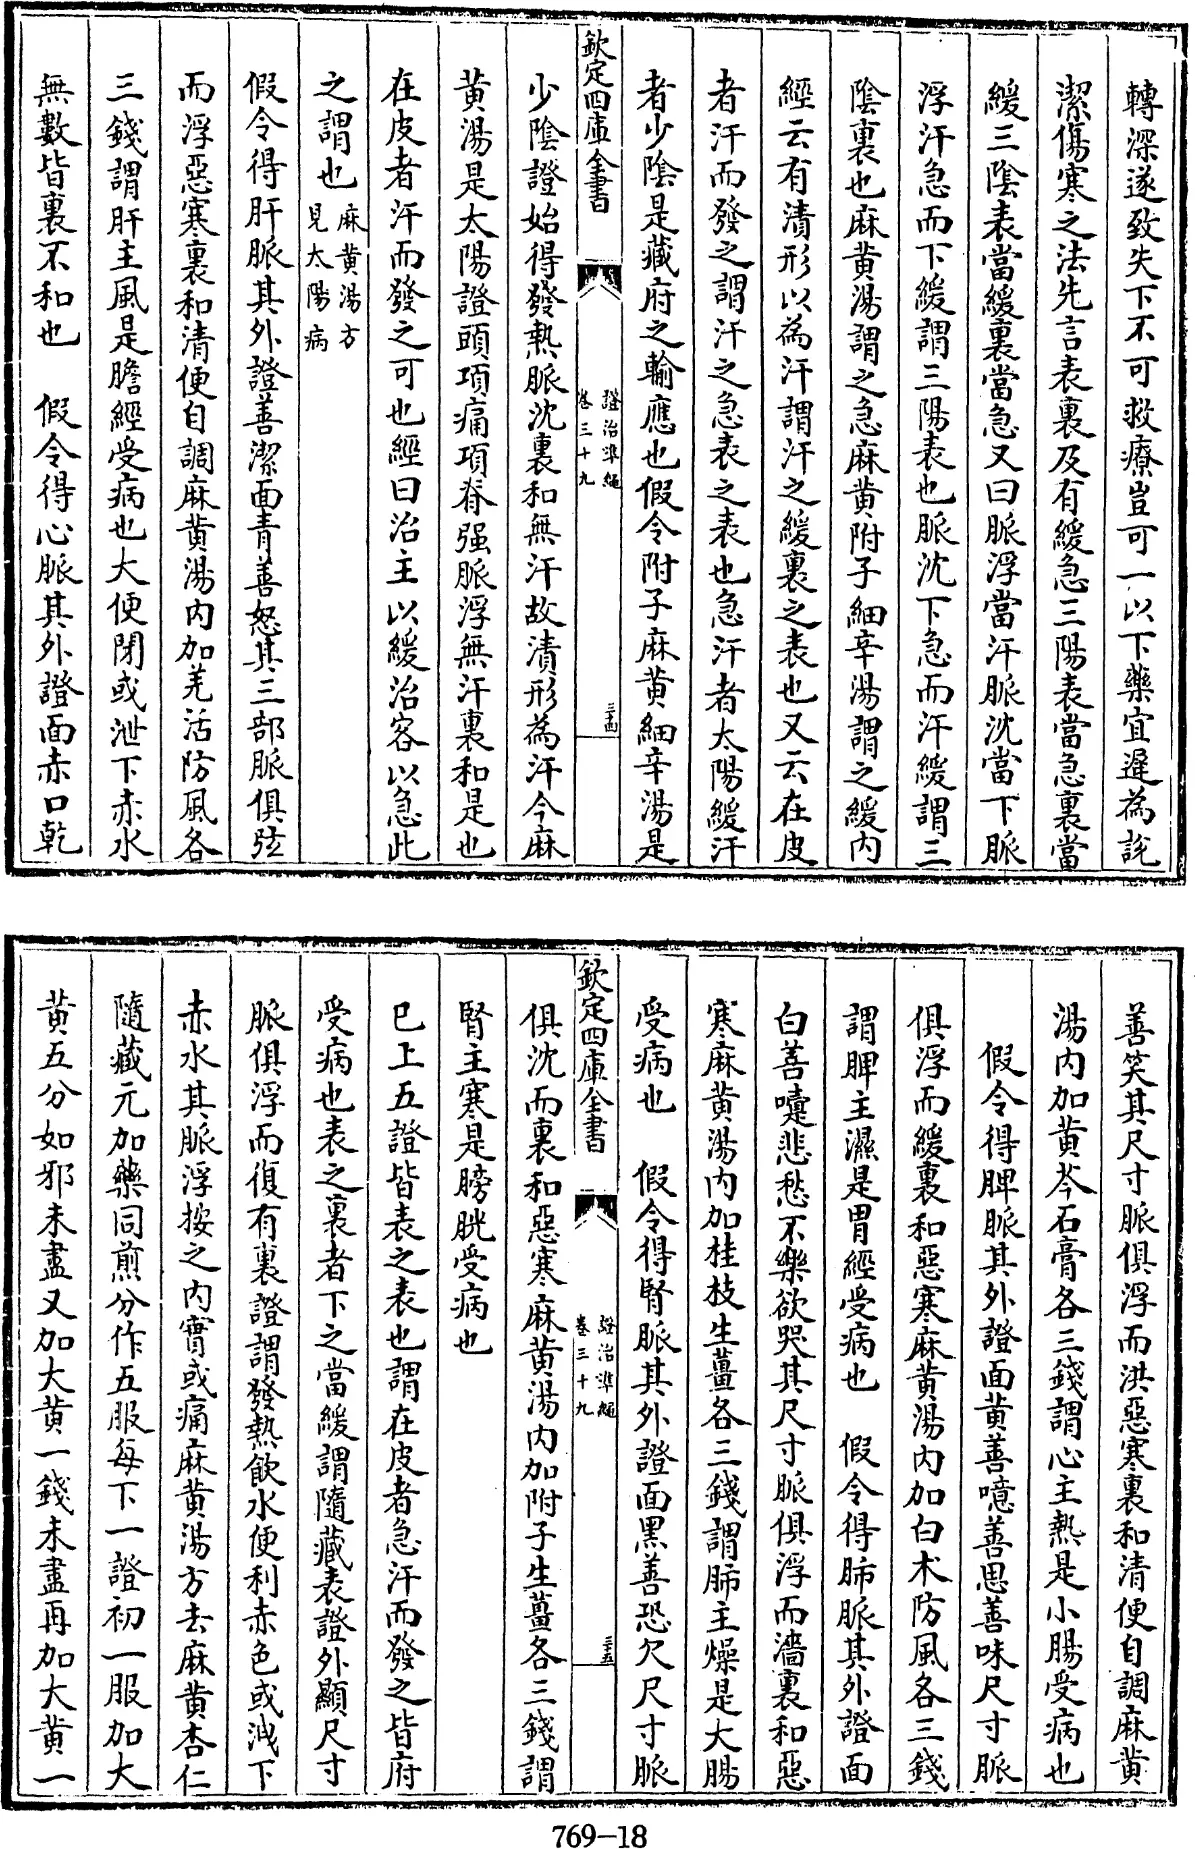 轉深遂致失下不可救療豈可一以下藥宜遲為說
潔傷寒之法先言表裏及有緩急三陽表當急裏當
緩三陰表當緩裏當急又曰脈浮當汗脈沈當下脈
浮汗急而下緩謂三陽表也脈沈下急而汗緩謂三
陰裏也麻黄湯謂之急麻黄附子細辛湯謂之緩内
經云有漬形以為汗謂汗之緩裏之表也又云在皮
者汗而發之謂汗之急表之表也急汗者太陽緩汗
者少陰是藏府之輸應也假令附子麻黄細辛湯是
欽定四庫全書
證治準繩
卷三十九
三十四
少陰證始得發熱脈沈裏和無汗故漬形為汗今麻
黄湯是太陽證頭項痛項脊强脈浮無汗裏和是也
在皮者汗而發之可也經曰治主以緩治客以急此
之謂也麻黄湯方
見太陽病
假令得肝脈其外證善潔面青善怒其三部脈俱弦
而浮惡寒裏和清便自調麻黄湯内加羌活防風各
三錢謂肝主風是膽經受病也大便閉或泄下赤水
無數皆裏不和也 假令得心脈其外證面赤口乾
善笑其尺寸脈俱浮而洪惡寒裏和清便自調麻黄
湯内加黄芩石膏各三錢謂心主熱是小腸受病也
假令得脾脈其外證面黄善噫善思善味尺寸脈
俱浮而緩裏和惡寒麻黄湯内加白朮防風各三錢
謂脾主濕是胃經受病也 假令得肺脈其外證面
白善嚏悲愁不樂欲哭其尺寸脈俱浮而濇裏和惡
寒麻黄湯内加桂枝生薑各三錢謂肺主燥是大腸
受病也 假令得腎脈其外證面黑善恐欠尺寸脈
欽定四庫全書
證治準繩
卷三十九
三十五
俱沈而裏和惡寒麻黄湯内加附子生薑各三錢謂
腎主寒是膀胱受病也
已上五證皆表之表也謂在皮者急汗而發之皆府
受病也表之裏者下之當緩謂隨藏表證外顯尺寸
脈俱浮而復有裏證謂發熱飲水便利赤色或洩下
赤水其脈浮按之内實或痛麻黄湯方去麻黄杏仁
隨藏元加藥同煎分作五服每下一證初一服加大
黄五分如邪未盡又加大黄一錢未盡再加大黄一
769-18